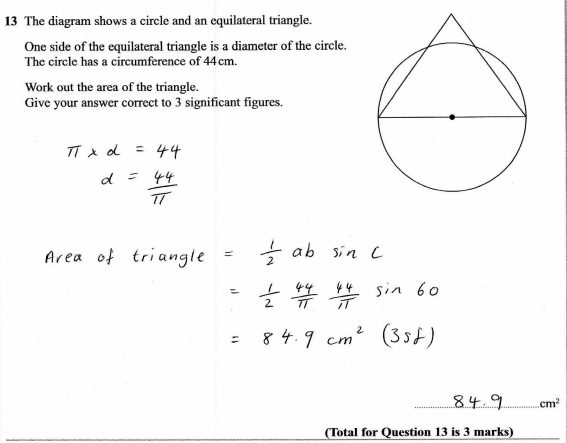 13 The diagram shows a circle and an equilateral triangle.
One side of the equilateral triangle is a diameter of the circle.
The circle has a circumference of 44 cm.
Work out the area of the triangle.
Give your answer correct to 3 significant figures.
π x d = 44
d = 44/π
Area of triangle = 1/2 ab sin C
= 1/2 44/π 44/π sin 60
= 84.9 cm² (3sf)
84.9 cm²
(Total for Question 13 is 3 marks)